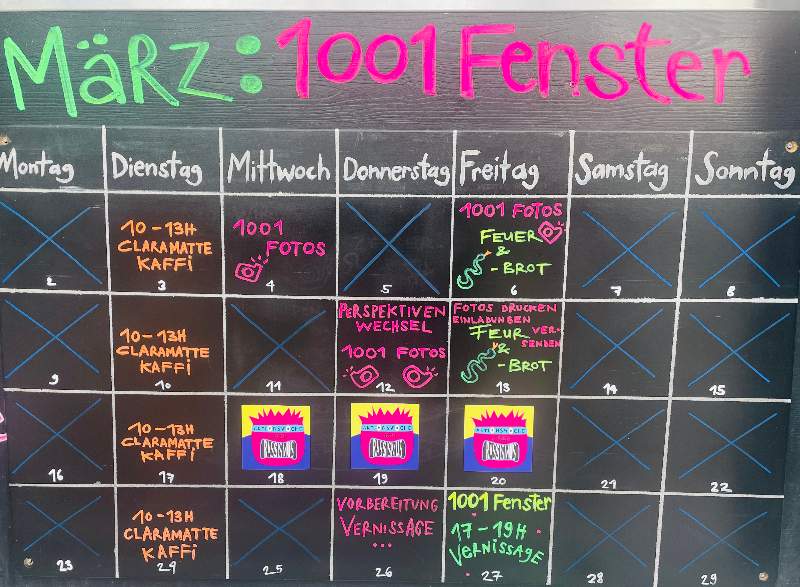 März: 1001 Fenster
Montag Dienstag Mittwoch Donnerstag Freitag Samstag Sonntag
2
10-13H
CLARAMATTE
KAFFi
3
1001
FOTOS
4
5
1001 FOTOS
FEUER
&
-BROT
6
7
8
9
10-13H
CLARAMATTE
KAFFi
10
11
PERSPEKTIVEN
WECHSEL
1001 FOTOS
12
FOTOS DRUCKEN
EINLADUNGEN
VER-
SENDEN
FEUR
&
-BROT
13
14
15
16
10-13H
CLARAMATTE
KAFFi
17
AKTIONSWOCHE
RASSISMUS
18
AKTIONSWOCHE
RASSISMUS
19
AKTIONSWOCHE
RASSISMUS
20
21
22
23
10-13H
CLARAMATTE
KAFFi
24
25
VORBEREITUNG
VERNISSAGE
...
26
1001 Fenster
17-19H
VERNISSAGE
27
28
29